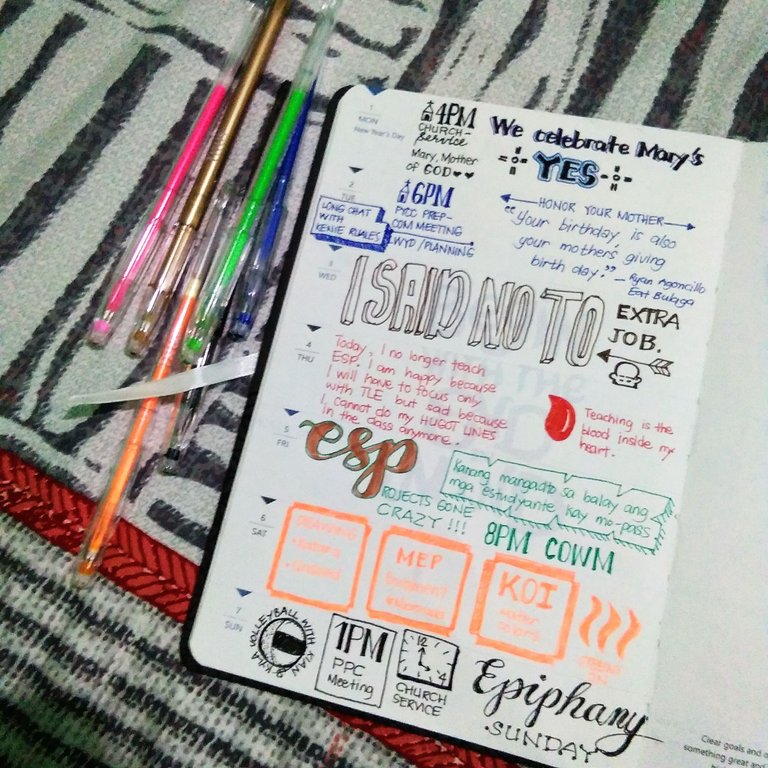 1
MON
New Year's Day
4PM
CHURCH
Service
Mary, Mother
of GOD
We celebrate Mary's
YES
2
TUE
LONG CHAT
WITH
KENIE RUALES
6PM
PYCC PREP-
COM MEETING
WYD/PLANNING
HONOR YOUR MOTHER
"Your birthday is also
your mother's giving
birth day."
- Ryan Agoncillo
Eat Bulaga
3
WED
I SAID NO TO
EXTRA
JOB.
4
THU
Today, I no longer teach
ESP. I am happy because
I will have to focus only
with TLE but sad because
I cannot do my HUGOT LINES
in the class anymore.
Teaching is the
blood inside my
heart.
5
FRI
esp
PROJECTS GONE
CRAZY!!!
Kanang mangadto sa balay ang
mga estudyante kay mo-pass
8PM COWM
6
SAT
DRAWING
MEP
KOI
water
colors
7
SUN
VOLLEYBALL WITH KIAN & KYLA
1PM
PPC
Meeting
12
4
CHURCH
SERVICE
Epiphany
SUNDAY
Clear goals and
something great and